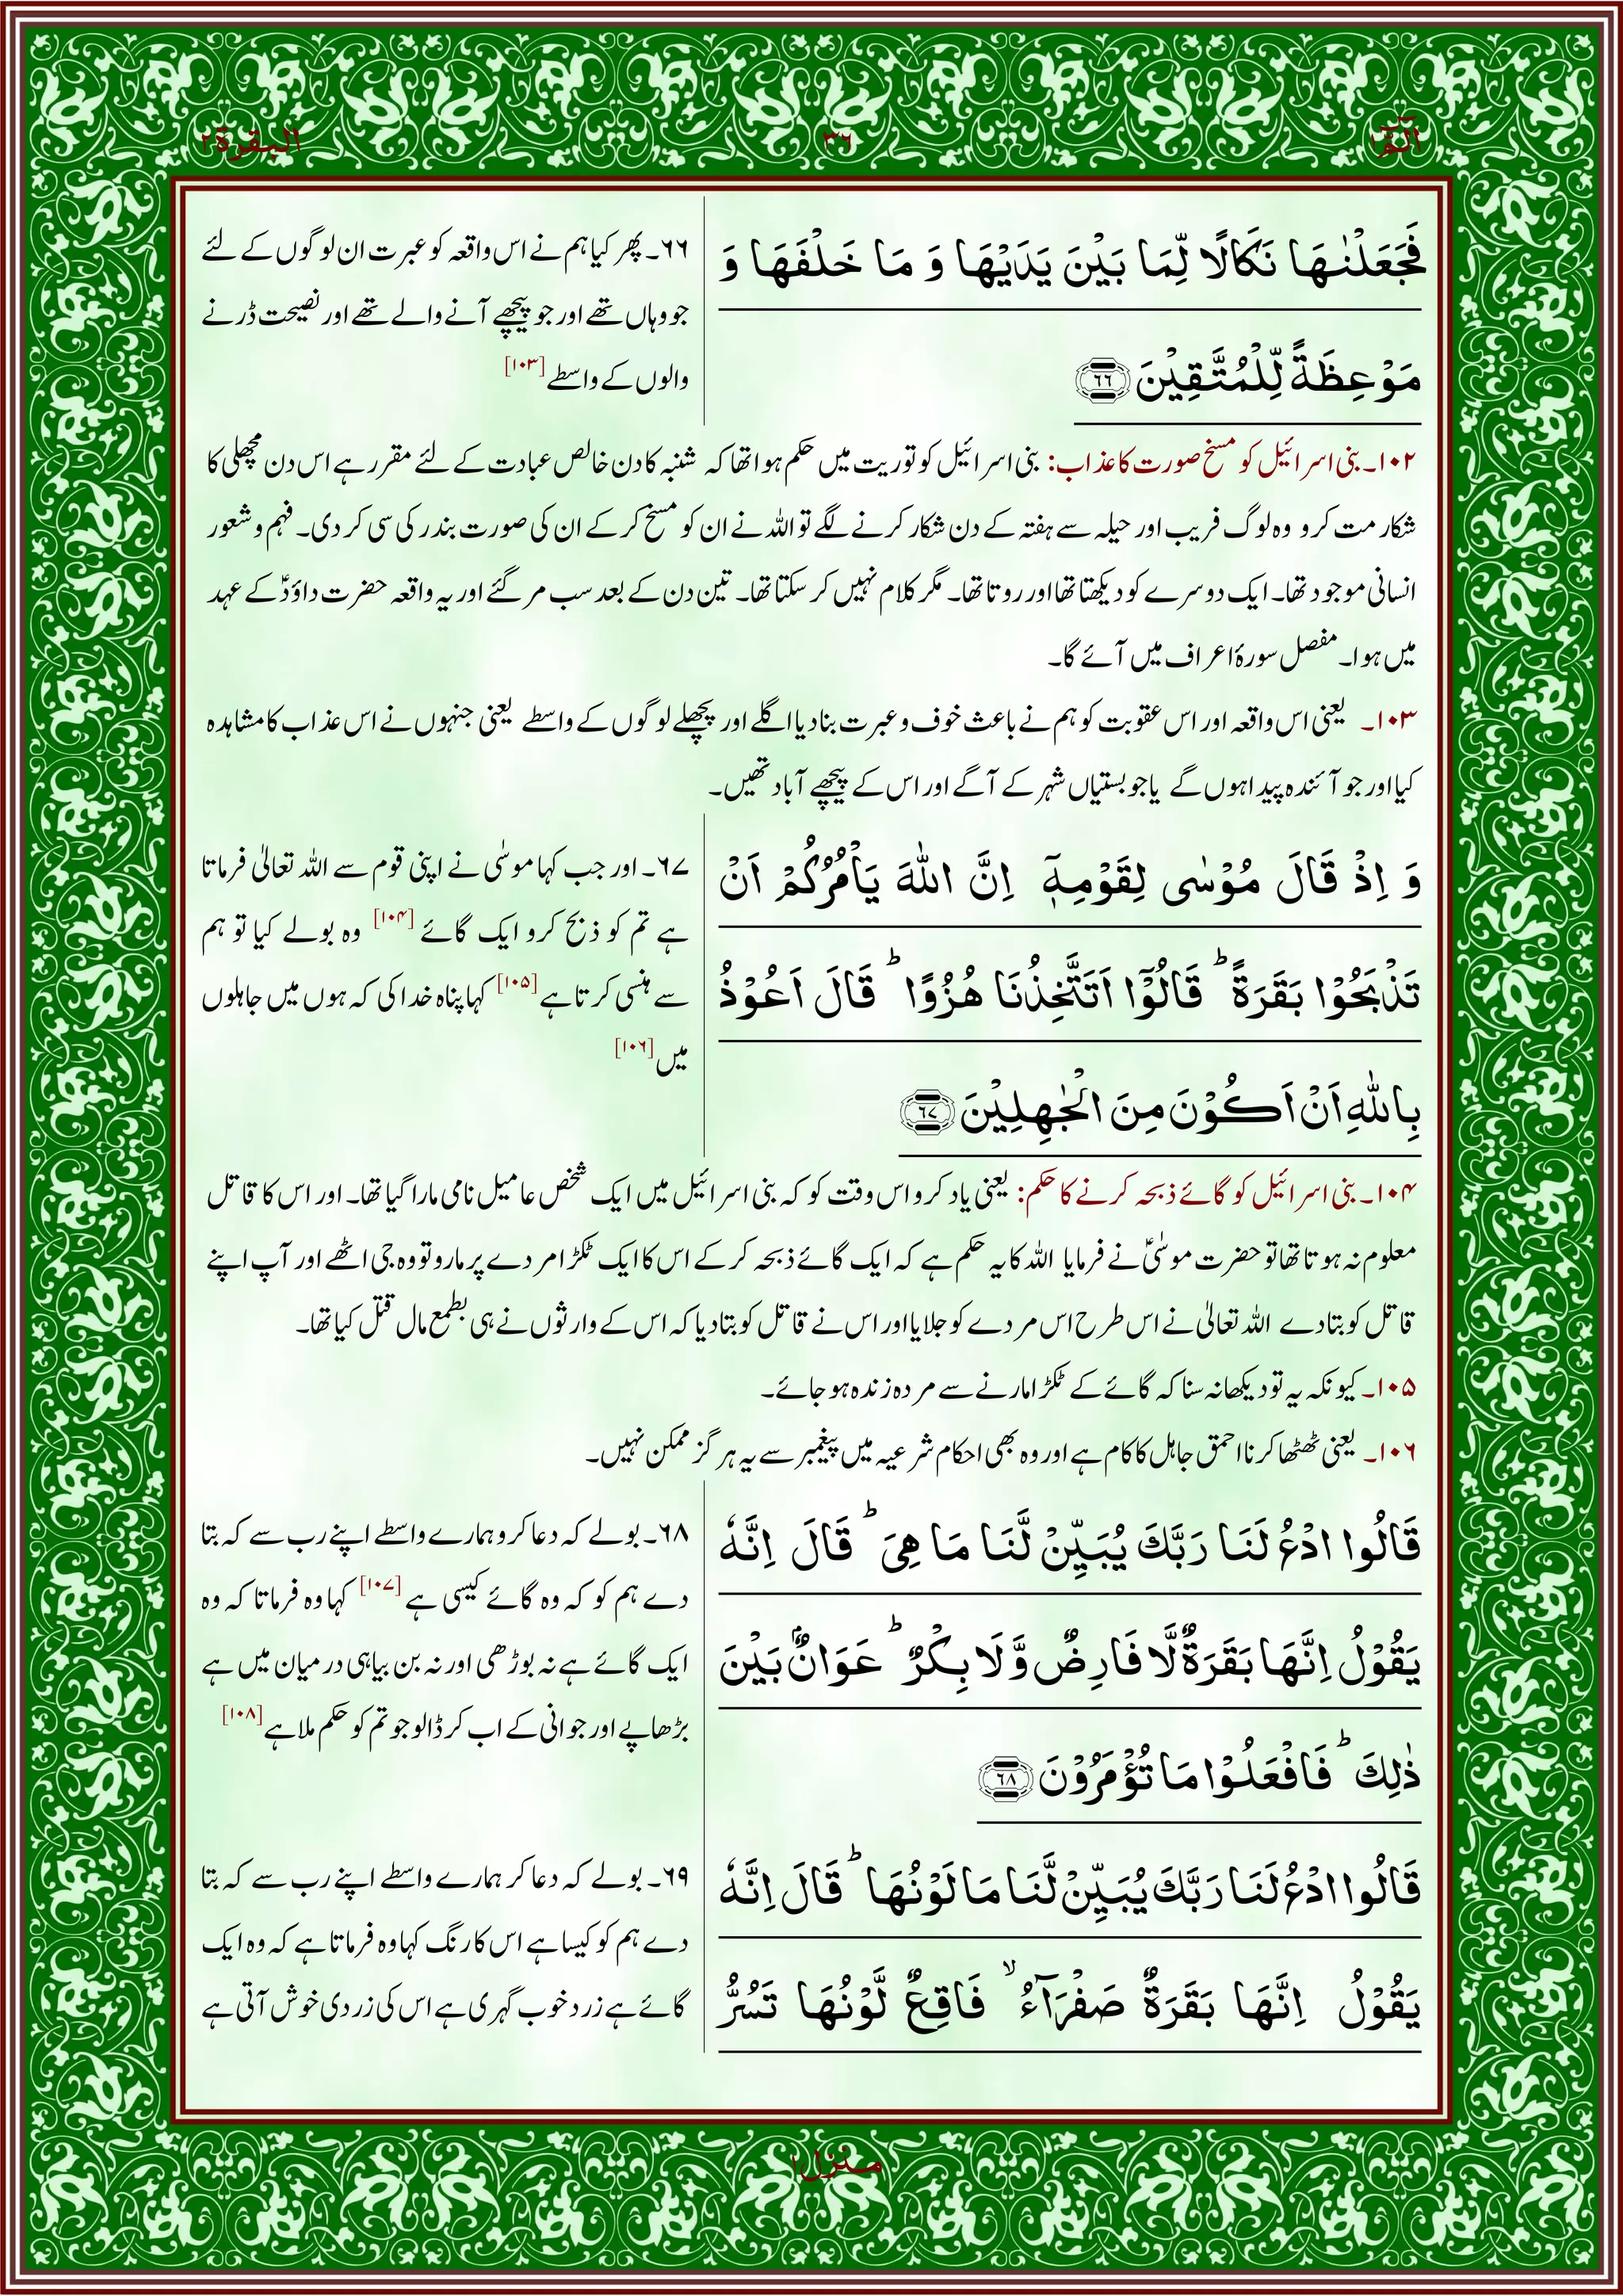 الٓمّٓ۱
۳۶
البقرۃ۲
فَجَعَلْنٰهَا نَكَالًا لِّمَا بَيْنَ يَدَيْهَا وَ مَا خَلْفَهَا وَ
مَوْعِظَةً لِّلْمُتَّقِيْنَ ﴿۶۶﴾
۶۶۔ پھر کیا ہم نے اس واقعہ کو عبرت ان لوگوں کے لئے
جو وہاں تھے اور جو پیچھے آنے والے تھے اور نصیحت ڈرنے
والوں کے واسطے [۱۰۳]
۱۰۲۔ بنی اسرائیل کو مسخ صورت کا عذاب: بنی اسرائیل کو توریت میں حکم ہوا تھا کہ شنبہ کا دن خالص عبادت کے لئے مقرر ہے اس دن مچھلی کا
شکار مت کرو وہ لوگ فریب اور حیلہ سے ہفتہ کے دن شکار کرنے لگے تو اللہ نے ان کو مسخ کر کے ان کی صورت بندر کی سی کر دی۔ فہم و شعور
انسانی موجود تھا۔ ایک دوسرے کو دیکھتا تھا اور روتا تھا۔ مگر کلام نہیں کر سکتا تھا۔ تین دن کے بعد سب مر گئے اور یہ واقعہ حضرت داؤدؑ کے عہد
میں ہوا۔ مفصل سورۂ اعراف میں آئے گا۔
۱۰۳۔ یعنی اس واقعہ اور اس عقوبت کو ہم نے باعث خوف و عبرت بنا دیا اگلے اور پچھلے لوگوں کے واسطے یعنی جنہوں نے اس عذاب کا مشاہدہ
کیا اور جو آئندہ پیدا ہوں گے یا جو بستیاں شہر کے آگے اور اس کے پیچھے آباد تھیں۔
وَ اِذْ قَالَ مُوْسٰى لِقَوْمِهٖۤ اِنَّ اللّٰهَ يَاْمُرُكُمْ اَنْ
تَذْبَحُوْا بَقَرَةً ؕ قَالُوْۤا اَتَتَّخِذُنَا هُزُوًا ؕ قَالَ اَعُوْذُ
بِاللّٰهِ اَنْ اَكُوْنَ مِنَ الْجٰهِلِيْنَ ﴿۶۷﴾
۶۷۔ اور جب کہا موسٰی نے اپنی قوم سے اللہ تعالٰی فرماتا
ہے تم کو ذبح کرو ایک گائے [۱۰۴] وہ بولے کیا تو ہم
سے ہنسی کرتا ہے [۱۰۵] کہا پناہ خدا کی کہ ہوں میں جاہلوں
میں [۱۰۶]
۱۰۴۔ بنی اسرائیل کو گائے ذبحہ کرنے کا حکم: یعنی یاد کرو اس وقت کو کہ بنی اسرائیل میں ایک شخص عامیل نامی مارا گیا تھا۔ اور اس کا قاتل
معلوم نہ ہوتا تھا تو حضرت موسٰیؑ نے فرمایا اللہ کا یہ حکم ہے کہ ایک گائے ذبحہ کر کے اس کا ایک ٹکڑا مردے پر مارو تو وہ جی اٹھے اور آپ اپنے
قاتل کو بتا دے اللہ تعالٰی نے اس طرح اس مردے کو جلایا اور اس نے قاتل کو بتا دیا کہ اس کے وارثوں نے ہی بطمع مال قتل کیا تھا۔
۱۰۵۔ کیونکہ یہ تو دیکھا نہ سنا کہ گائے کے ٹکڑا مارنے سے مردہ زندہ ہو جائے۔
۱۰۶۔ یعنی ٹھٹھا کرنا احمق جاہل کا کام ہے اور وہ بھی احکام شرعیہ میں پیغمبر سے یہ ہرگز ممکن نہیں۔
قَالُوا ادْعُ لَنَا رَبَّكَ يُبَيِّنْ لَّنَا مَا هِيَ ؕ قَالَ اِنَّهٗ
يَقُوْلُ اِنَّهَا بَقَرَةٌ لَّا فَارِضٌ وَّ لَا بِكْرٌ ؕ عَوَانٌۢ بَيْنَ
ذٰلِكَ ؕ فَافْعَلُوْا مَا تُؤْمَرُوْنَ ﴿۶۸﴾
۶۸۔ بولے کہ دعا کرو ہمارے واسطے اپنے رب سے کہ بتا
دے ہم کو کہ وہ گائے کیسی ہے [۱۰۷] کہا وہ فرماتا کہ وہ
ایک گائے ہے نہ بوڑھی اور نہ بن بیاہی درمیان میں ہے
بڑھاپے اور جوانی کے اب کر ڈالو جو تم کو حکم ملا ہے [۱۰۸]
قَالُوا ادْعُ لَنَا رَبَّكَ يُبَيِّنْ لَّنَا مَا لَوْنُهَا ؕ قَالَ اِنَّهٗ
يَقُوْلُ اِنَّهَا بَقَرَةٌ صَفْرَآءُ ۙ فَاقِعٌ لَّوْنُهَا تَسُرُّ
۶۹۔ بولے کہ دعا کر ہمارے واسطے اپنے رب سے کہ بتا
دے ہم کو کیسا ہے اس کا رنگ کہا وہ فرماتا ہے کہ وہ ایک
گائے ہے زرد خوب گہری ہے اس کی زردی خوش آتی ہے
منزل۱